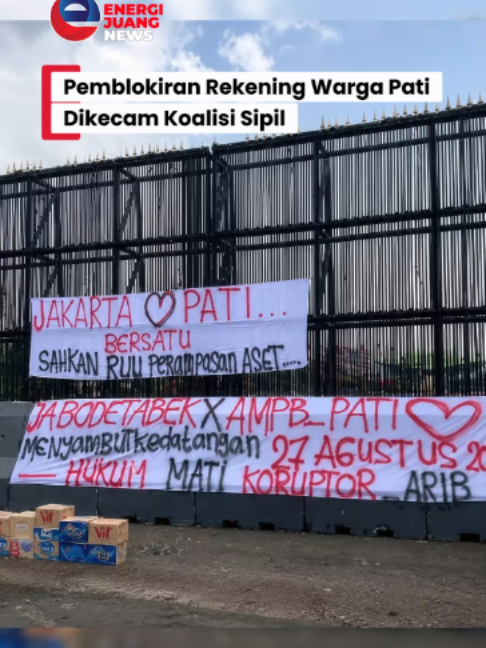 ENERGI
JUANG
NEWS
Pemblokiran Rekening Warga Pati
Dikecam Koalisi Sipil
JAKARTA ♡ PATI...
BERSATU
SAHKAN RUU PERAMPASAN ASET....
JABODETABEK X AMPB_PATI ♡
MENYAMBUT kedatangan 27 AGUSTUS 20
— HUKUM MATI KORUPTOR _ARIB
Vit
Vit